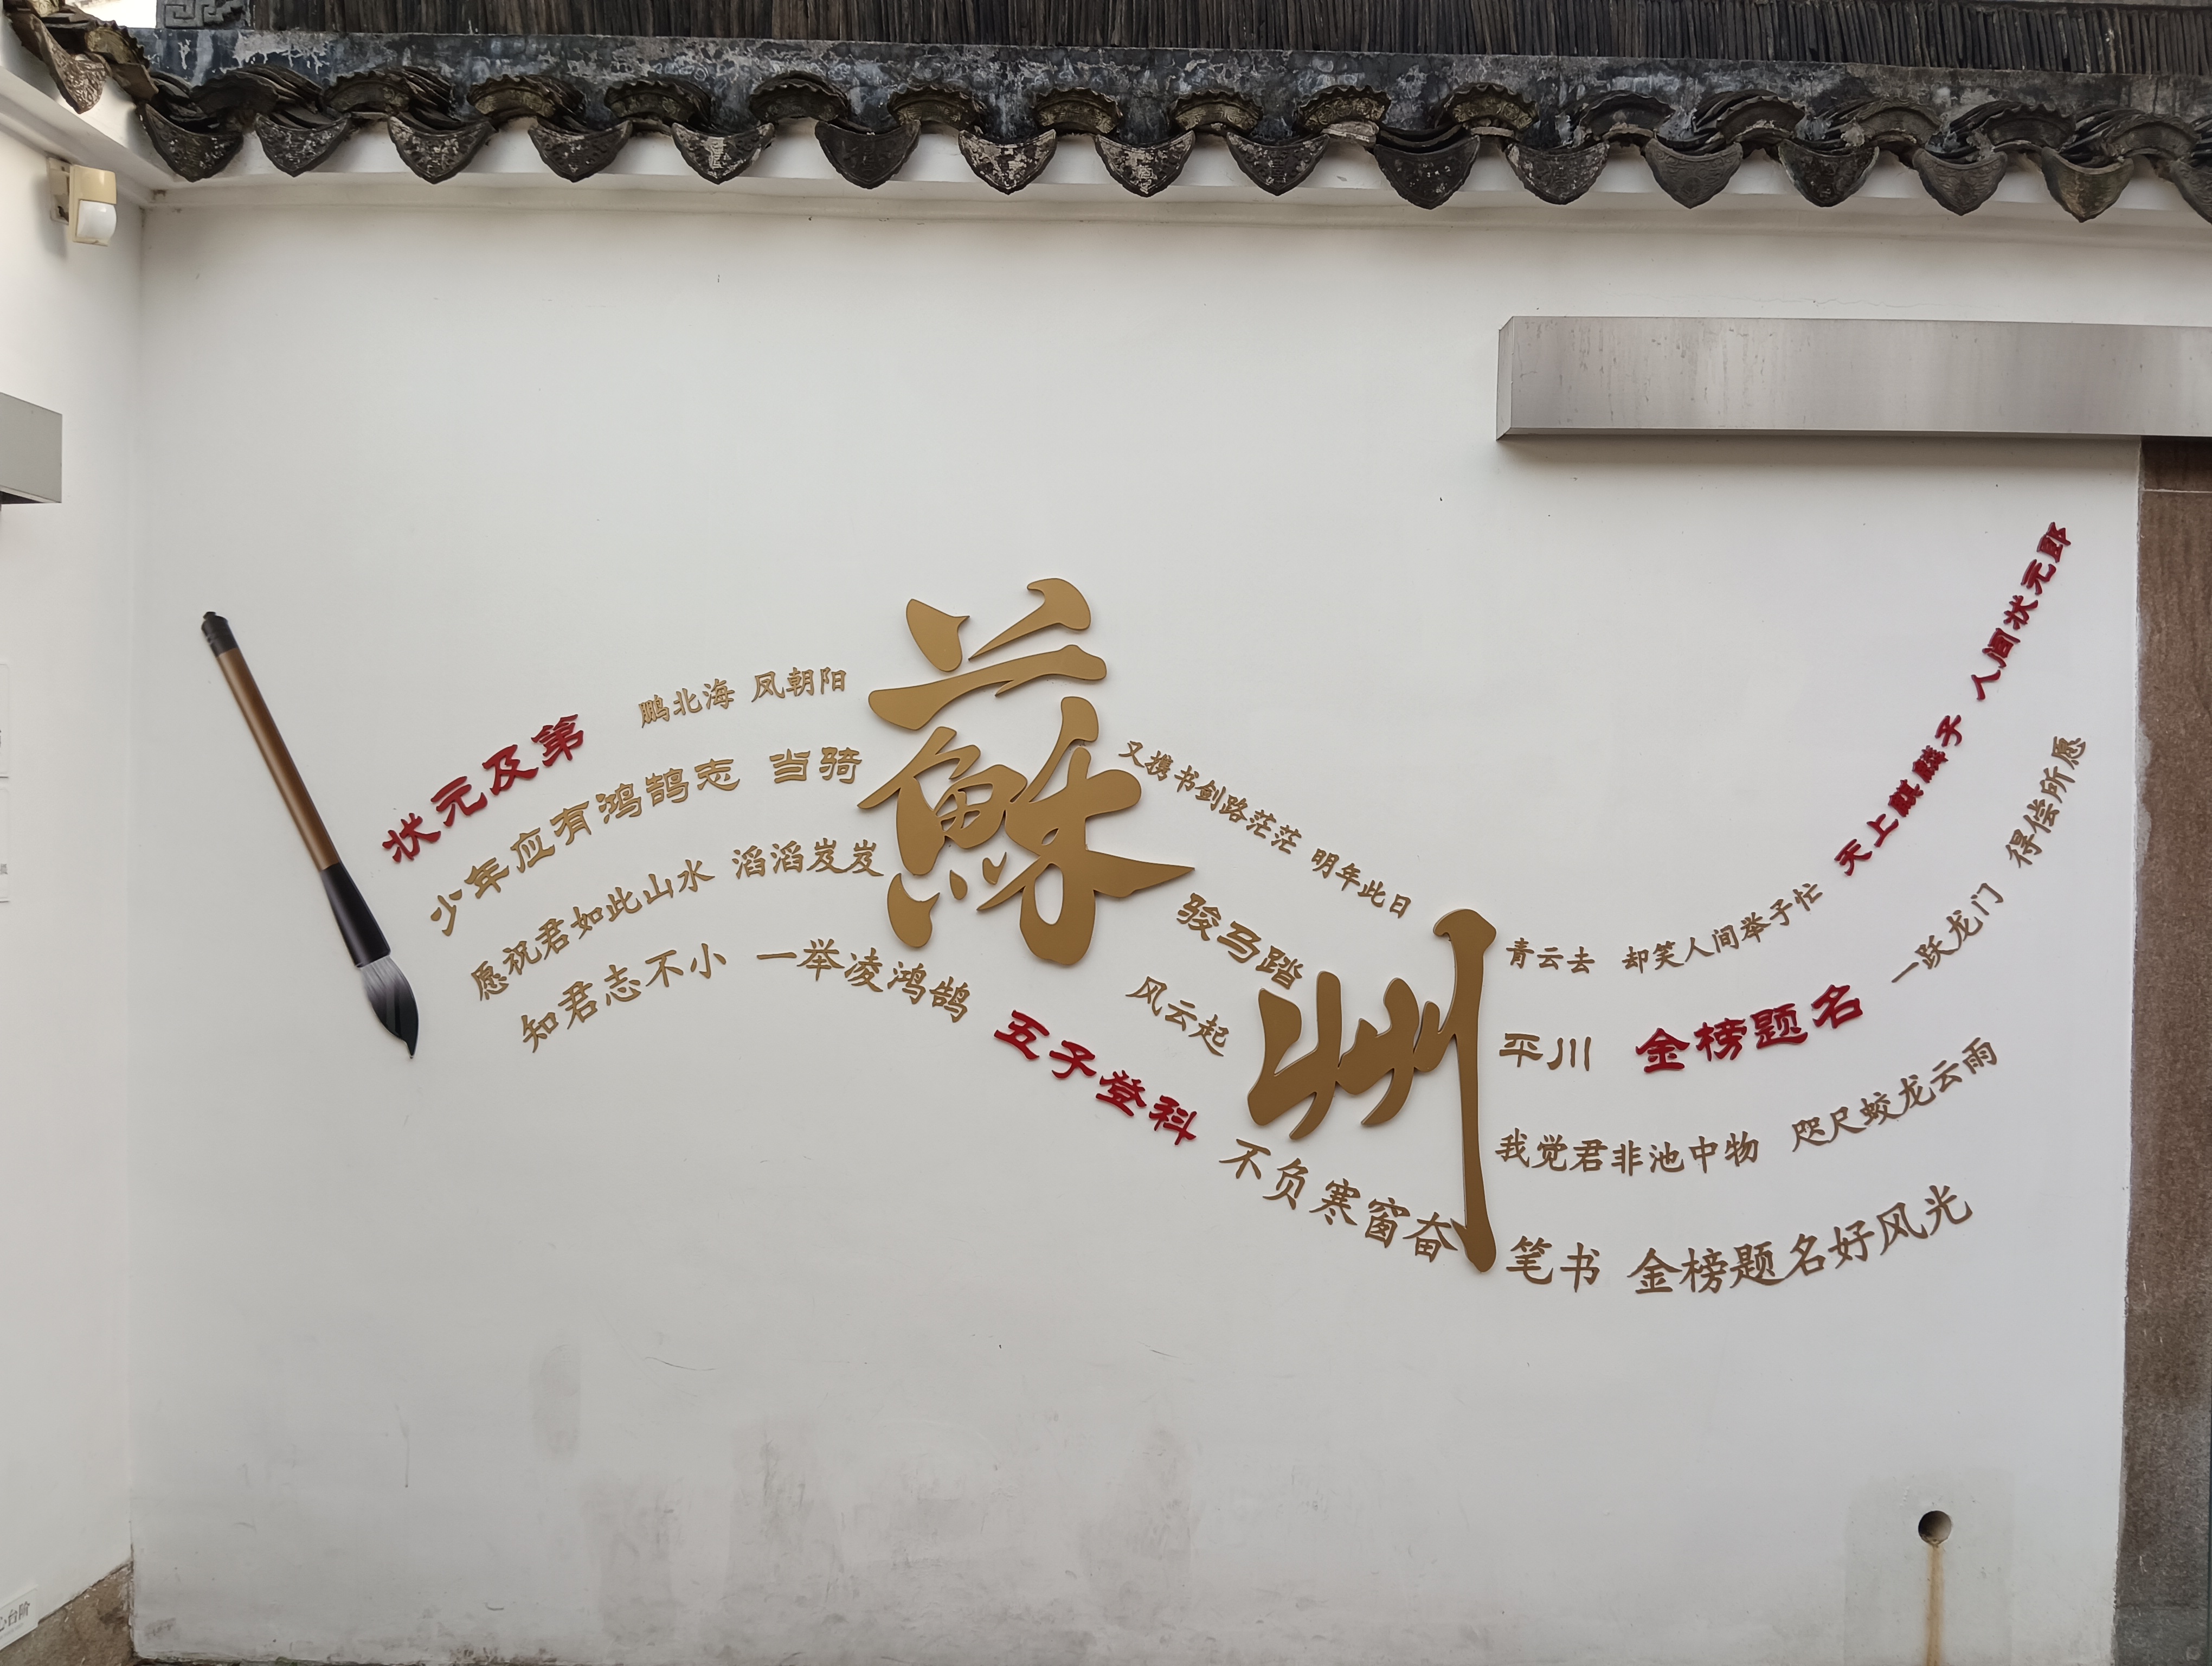 状元及第 鹏北海 凤朝阳 又携书剑路茫茫 明年此日 青云去 却笑人间举子忙 天上麒麟子 人间状元郎
少年应有鸿鹄志 当骑 骏马踏 平川 金榜题名 一跃龙门 得偿所愿
蘇州
愿祝君如此山水 滔滔岌岌 风云起 我觉君非池中物 咫尺蛟龙云雨
知君志不小 一举凌鸿鹄 五子登科 不负寒窗奋 笔书 金榜题名好风光
心台阶